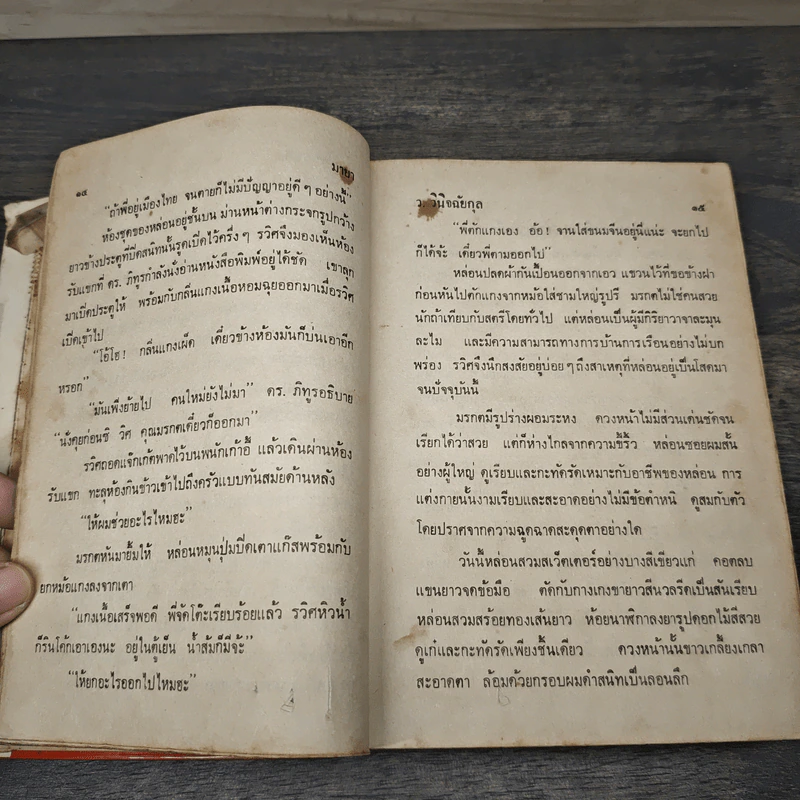 ๑๔ มายา
"ถ้าพี่อยู่เมืองไทย จนตายก็ไม่มีปัญญาอยู่ดี ๆ อย่างนี้"
ห้องชุดของหล่อนอยู่ชั้นบน ม่านหน้าต่างกระจกรูปกว้าง
ยาวข้างประตูที่ปิดสนิทนั้นรูดเปิดไว้ครึ่ง ๆ รวิศจึงมองเห็นห้อง
รับแขกที่ ดร. ภิทูรกำลังนั่งอ่านหนังสือพิมพ์อยู่ได้ชัด เขาลุก
มาเปิดประตูให้ พร้อมกับกลิ่นแกงเนื้อหอมฉุยออกมาเมื่อรวิศ
เปิดเข้าไป
"โอ้โฮ! กลิ่นแกงเผ็ด เดี๋ยวข้างห้องมันก็บ่นเอาอีก
หรอก"
"มันเพิ่งย้ายไป คนใหม่ยังไม่มา" ดร. ภิทูรอธิบาย
"นั่งคุยก่อนซิ วิศ คุณมรกตเดี๋ยวก็ออกมา"
รวิศถอดแจ๊กเก้ตพาดไว้บนพนักเก้าอี้ แล้วเดินผ่านห้อง
รับแขก ทะลุห้องกินข้าวเข้าไปถึงครัวแบบทันสมัยด้านหลัง
"ให้ผมช่วยอะไรไหมฮะ"
มรกตหันมายิ้มให้ หล่อนหมุนปุ่มปิดเตาแก๊สพร้อมกับ
ยกหม้อแกงลงจากเตา
"แกงเนื้อเสร็จพอดี พี่จัดโต๊ะเรียบร้อยแล้ว รวิศหิวน้ำ
ก็รินโค้กเอาเองนะ อยู่ในตู้เย็น น้ำส้มก็มีจ้ะ"
"ให้ยกอะไรออกไปไหมฮะ"
ว. วินิจฉัยกุล ๑๕
"พี่ตักแกงเอง อ้อ! จานใส่ขนมจีนอยู่นี่แน่ะ จะยกไป
ก็ได้จ้ะ เดี๋ยวพี่ตามออกไป"
หล่อนปลดผ้ากันเปื้อนออกจากเอว แขวนไว้ที่ขอข้างฝา
ก่อนหันไปตักแกงจากหม้อใส่ชามใหญ่รูปรี มรกตไม่ใช่คนสวย
นักถ้าเทียบกับสตรีโดยทั่วไป แต่หล่อนเป็นผู้มีกิริยาวาจาละมุน
ละไม และมีความสามารถทางการบ้านการเรือนอย่างไม่บก
พร่อง รวิศจึงนึกสงสัยอยู่บ่อย ๆ ถึงสาเหตุที่หล่อนอยู่เป็นโสดมา
จนปัจจุบันนี้
มรกตมีรูปร่างผอมระหง ดวงหน้าไม่มีส่วนเด่นชัดจน
เรียกได้ว่าสวย แต่ก็ห่างไกลจากความขี้ริ้ว หล่อนซอยผมสั้น
อย่างผู้ใหญ่ ดูเรียบและกะทัดรัดเหมาะกับอาชีพของหล่อน การ
แต่งกายนั้นงามเรียบและสะอาดอย่างไม่มีข้อตำหนิ ดูสมกับตัว
โดยปราศจากความฉูดฉาดสะดุดตาอย่างใด
วันนี้หล่อนสวมสเว็ตเตอร์อย่างบางสีเขียวแก่ คอตลบ
แขนยาวจดข้อมือ ตัดกับกางเกงขายาวสีนวลรีดเป็นสันเรียบ
หล่อนสวมสร้อยทองเส้นยาว ห้อยนาฬิกาลงยารูปดอกไม้สีสวย
ดูเก๋และกะทัดรัดเพียงชิ้นเดียว ดวงหน้านั้นขาวเกลี้ยงเกลา
สะอาดตา ล้อมด้วยกรอบผมดำสนิทเป็นลอนลึก